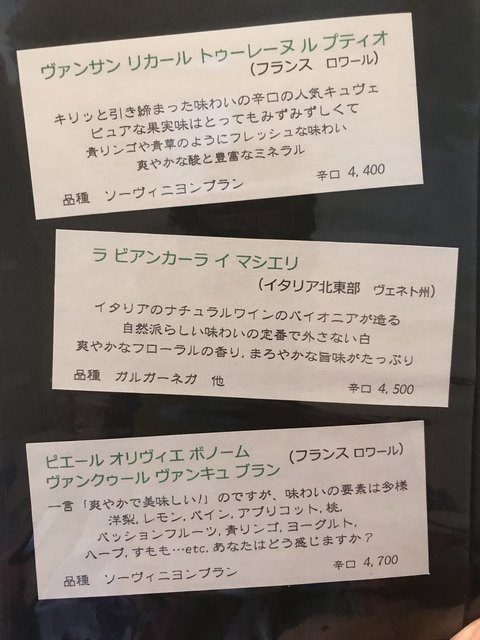 ヴァンサン リカール トゥーレーヌ ル プティオ
(フランス ロワール)
キリッと引き締まった味わいの辛口の人気キュヴェ
ピュアな果実味はとってもみずみずしくて
青リンゴや青草のようにフレッシュな味わい
爽やかな酸と豊富なミネラル
品種 ソーヴィニヨンブラン 辛口 4,400
ラ ビアンカーラ イ マシエリ
(イタリア北東部 ヴェネト州)
イタリアのナチュラルワインのパイオニアが造る
自然派らしい味わいの定番で外さない白
爽やかなフローラルの香り,まろやかな旨味がたっぷり
品種 ガルガーネガ 他 辛口 4,500
ピエール オリヴィエ ボノーム (フランス ロワール)
ヴァンクゥール ヴァンキュ ブラン
一言「爽やかで美味しい!」のですが、味わいの要素は多様
洋梨,レモン,パイン,アプリコット,桃,
パッションフルーツ,青リンゴ,ヨーグルト,
ハーブ,すもも…etc,あなたはどう感じますか?
品種 ソーヴィニヨンブラン 辛口 4,700